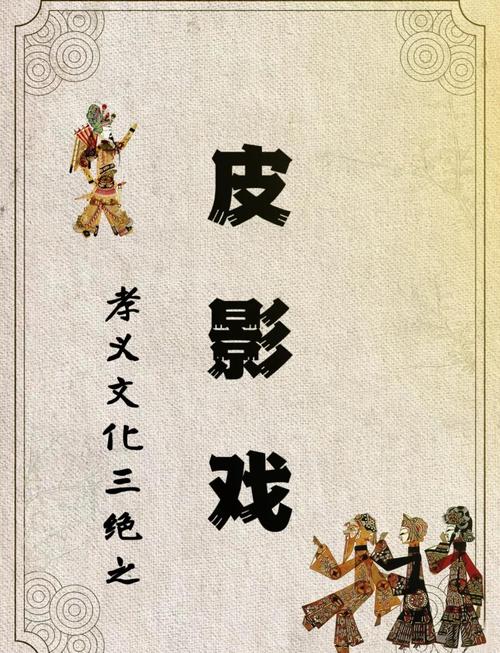 孝义文化三绝之
皮影戏